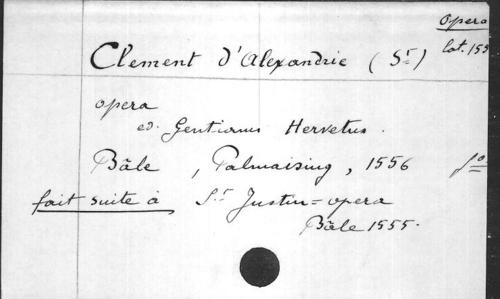 Opera
lat. 155
Clement d'Alexandrie (St)
opera
ed. Gentianus Hervetus.
Bâle, Palmaising, 1556 fo
fait suite à St Justin = opera
Bâle 1555.